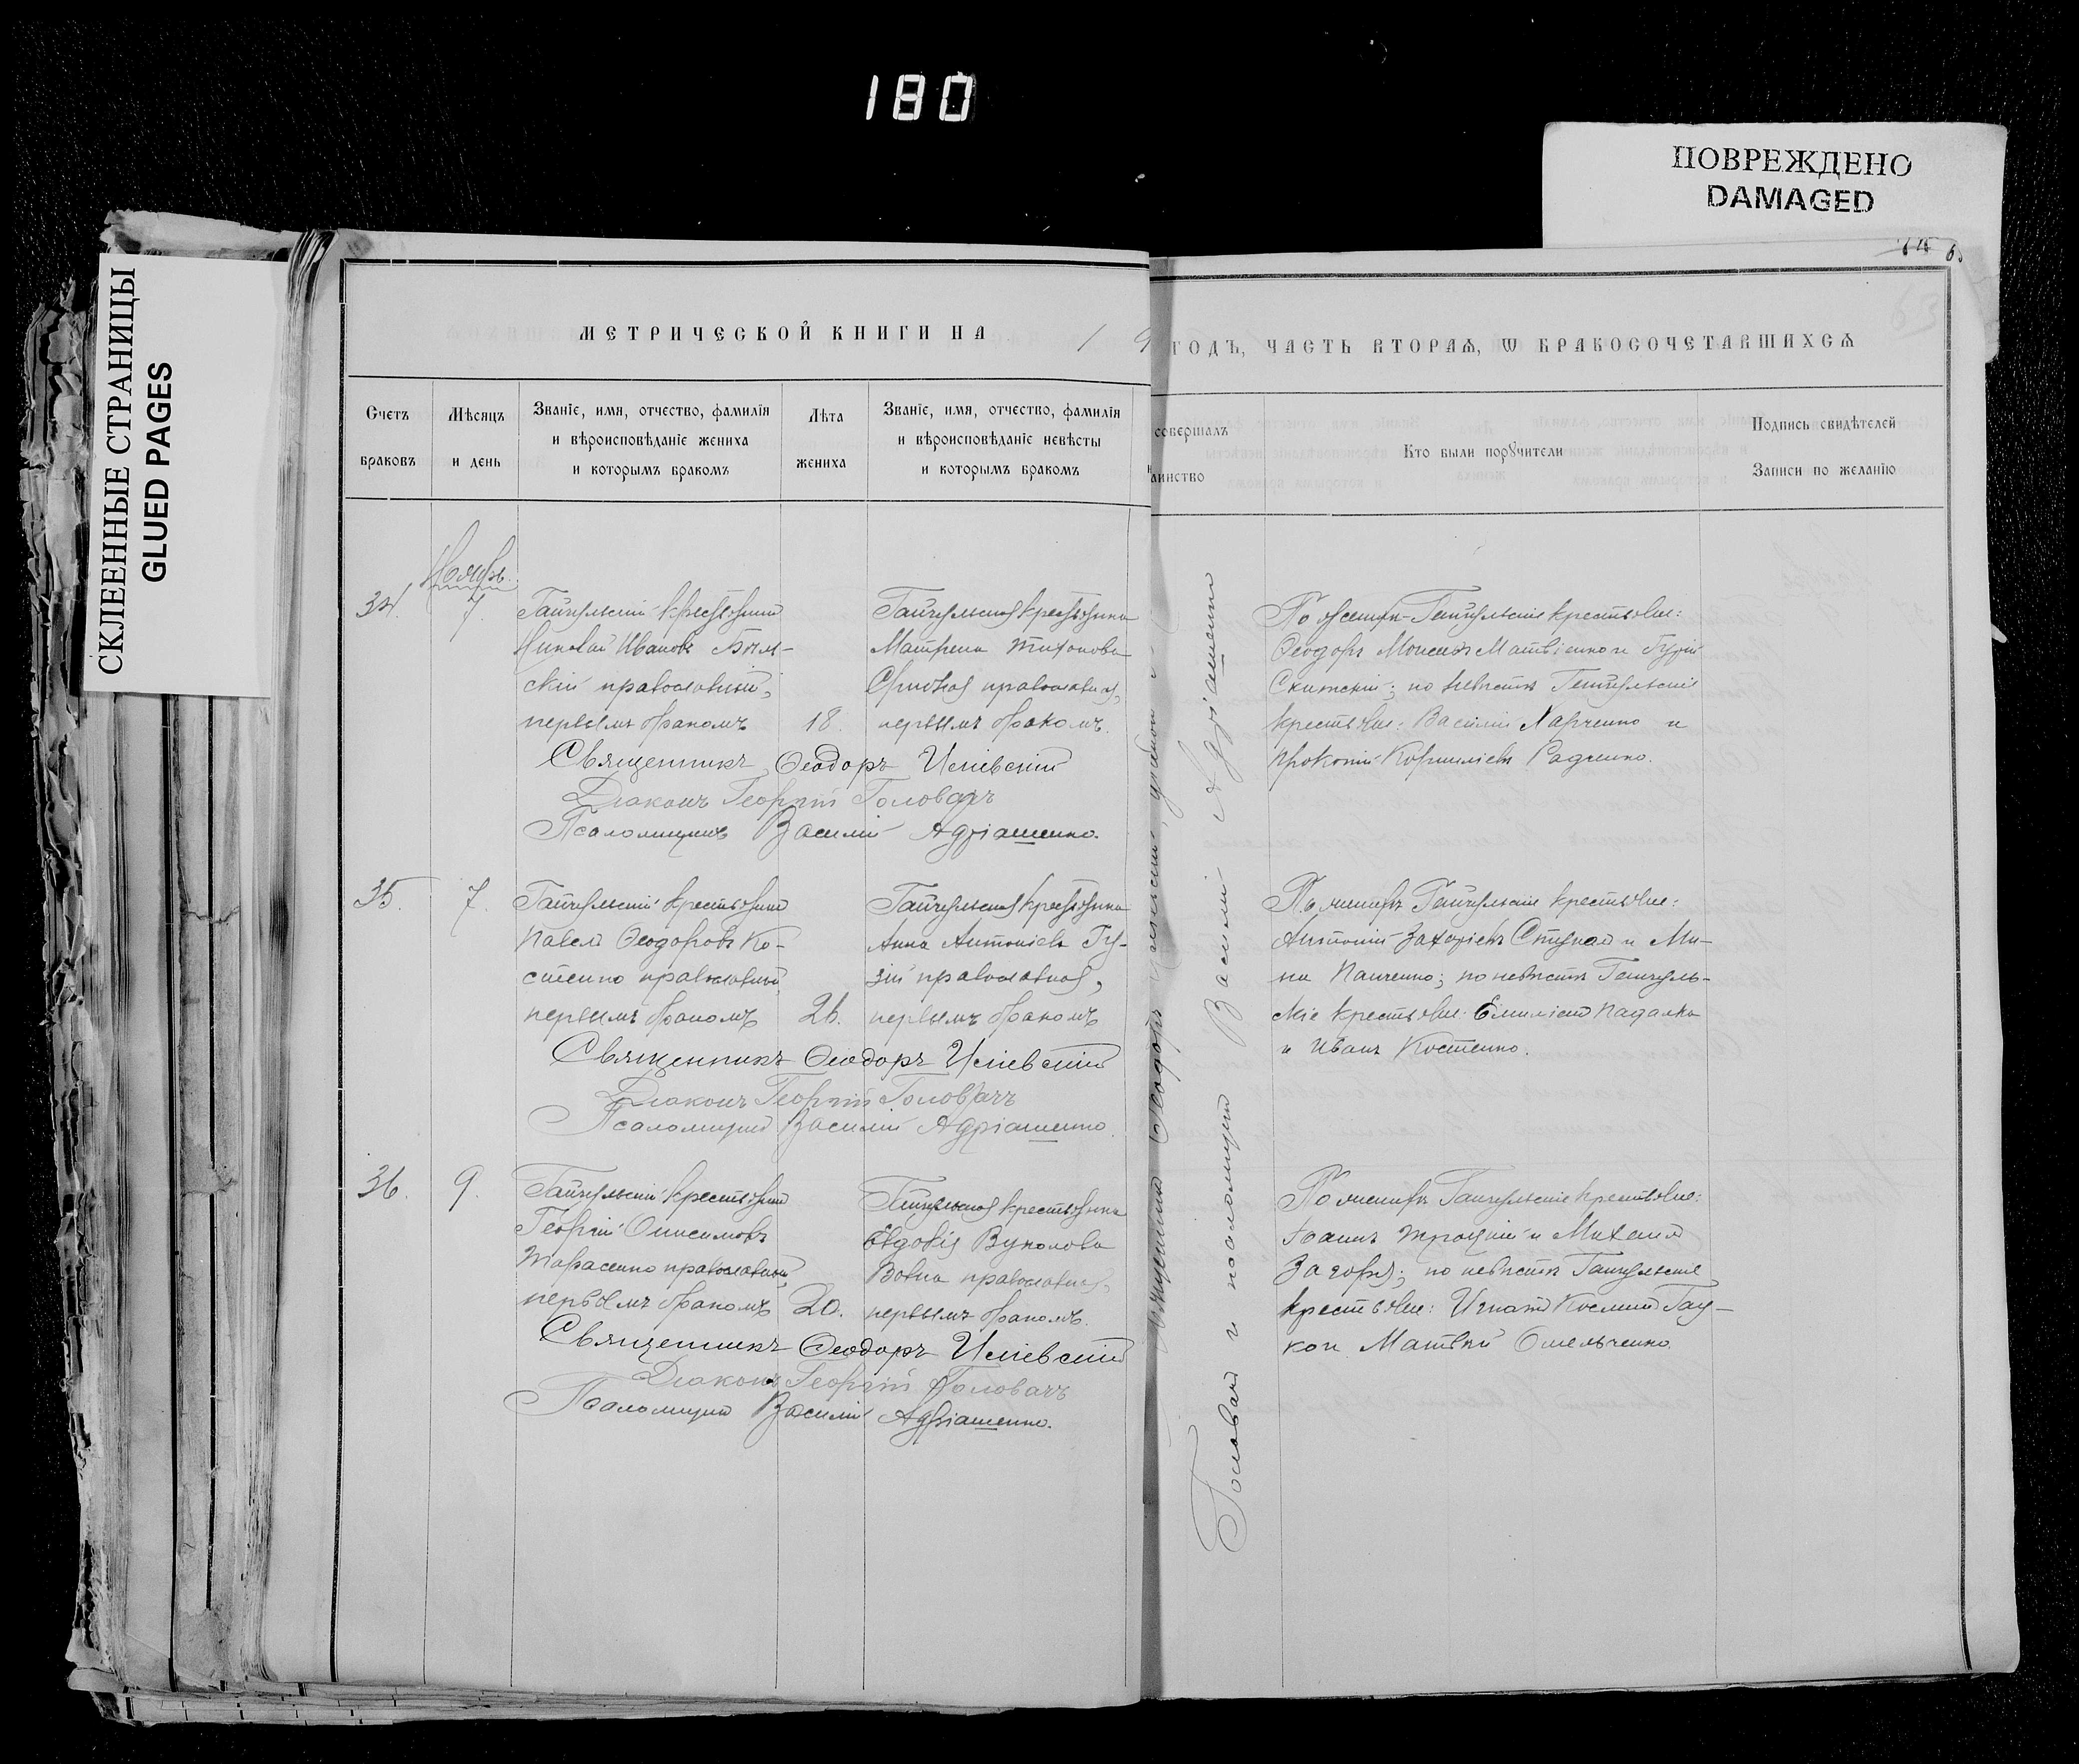 180
ПОВРЕЖДЕНО
DAMAGED
СКЛЕЕННЫЕ СТРАНИЦЫ
GLUED PAGES
МЕТРИЧЕСКОЙ КНИГИ НА 1 9
ГОДЪ, ЧАСТЬ ВТОРАѦ, Ѡ БРАКОСОЧЕТАВШИХСѦ
Счетъ браковъ
Мѣсяцъ и день
Званіе, имя, отчество, фамилія и вѣроисповѣданіе жениха и которымъ бракомъ
Лѣта жениха
Званіе, имя, отчество, фамилія и вѣроисповѣданіе невѣсты и которымъ бракомъ
совершалъ
таинство
Кто были порꙋчители
Подпись свидѣтелей
Записи по желанію
Ноябрь.
34. 7. Гайчульскій крестьянинъ
Николай Ивановъ Бѣл-
скій православный,
первымъ бракомъ 18.
Гайчульская крестьянка
Матрена Тихонова
православная,
первымъ бракомъ.
По женихѣ Гайчульскіе крестьяне:
Ѳеодоръ Моисеевъ Матвіенко и Гурій
по невѣстѣ Гайчульскіе
крестьяне: Василій Харченко и
Прокопій Корниліевъ Радченко.
Священникъ Ѳеодоръ
Діаконъ Георгій Головачъ
Псаломщикъ Василій Адріашенко.
35. 7. Гайчульскій крестьянинъ
Павелъ Ѳеодоровъ Ко-
стенко православный
первымъ бракомъ 26.
Гайчульская крестьянка
Анна Антоніева Гу-
зій православная,
первымъ бракомъ
По женихѣ Гайчульскіе крестьяне:
Антоній Захаріевъ Ступак и Ми-
на Панченко; по невѣстѣ Гайчуль-
скіе крестьяне: Емиліанъ Падалка
и Иванъ Костенко.
Священникъ Ѳеодоръ
Діаконъ Георгій Головачъ
Псаломщикъ Василій Адріашенко.
36. 9. Гайчульскій крестьянинъ
Георгій Онисимовъ
Тарасенко православный,
первымъ бракомъ 20.
Гайчульская крестьянка
Евдокія Вуколова
Вовна православная,
первымъ бракомъ.
По женихѣ Гайчульскіе крестьяне:
Іоаннъ Троцкій и Михаилъ
Загоря; по невѣстѣ Гайчульскіе
крестьяне: Игнатъ Космин Гау-
ко и Матвѣй Омельченко.
Священникъ Ѳеодоръ
Діаконъ Георгій Головачъ
Псаломщикъ Василій Адріашенко.
Священникъ Ѳеодоръ
Головачъ и псаломщикъ Василій Адріашенко